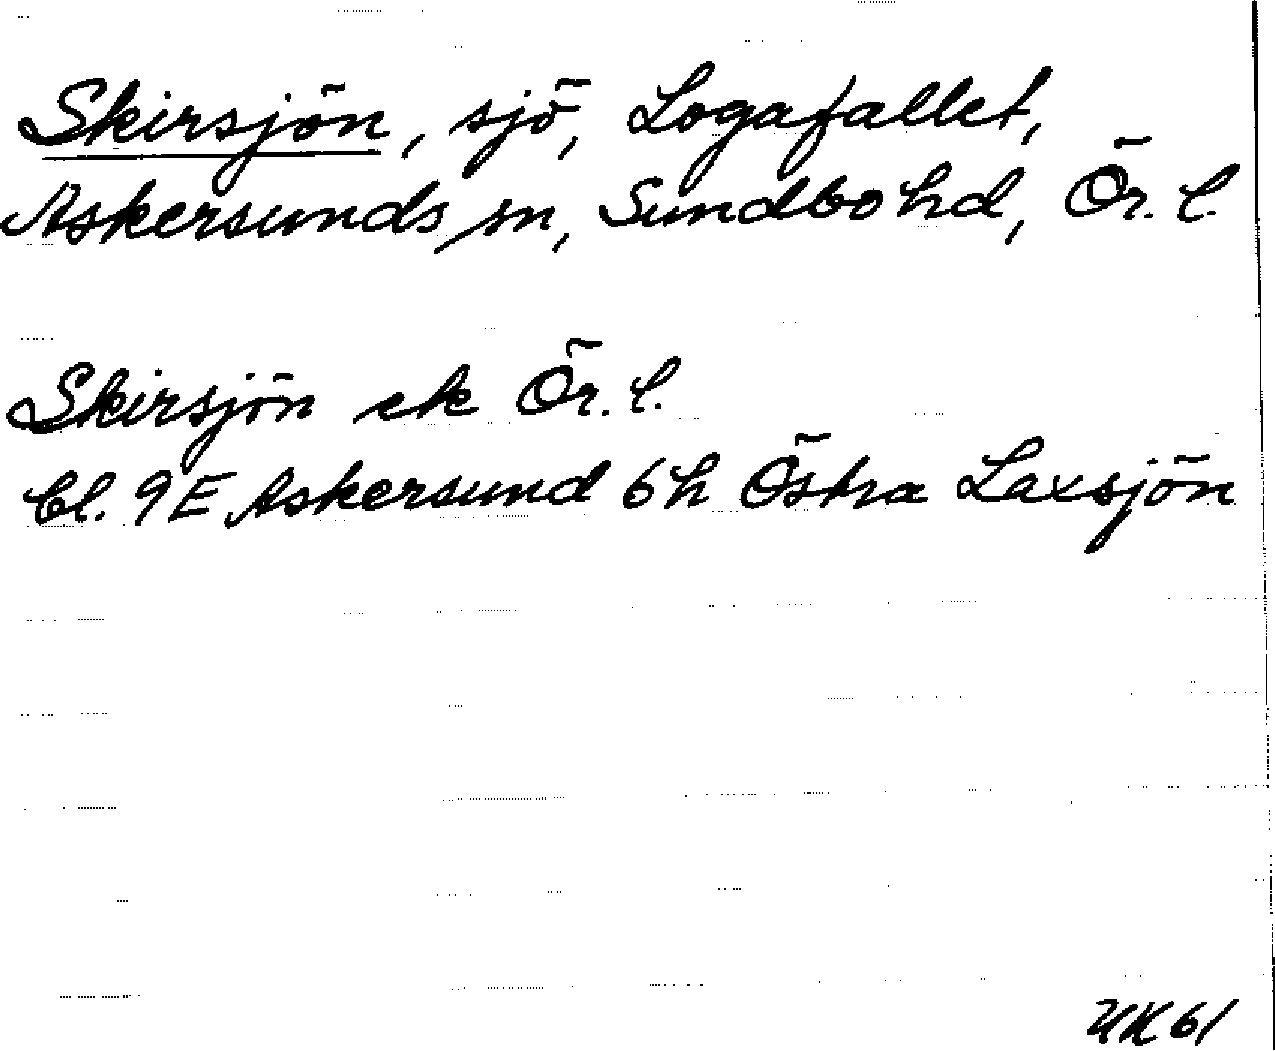 Skirsjön, sjö, Logafallet,
Askersunds sn, Sundbo hd, Ör. l.
Skirsjön ek Ör. l.
bl. 9E Askersund 6h Östra Laxsjön
UK 61